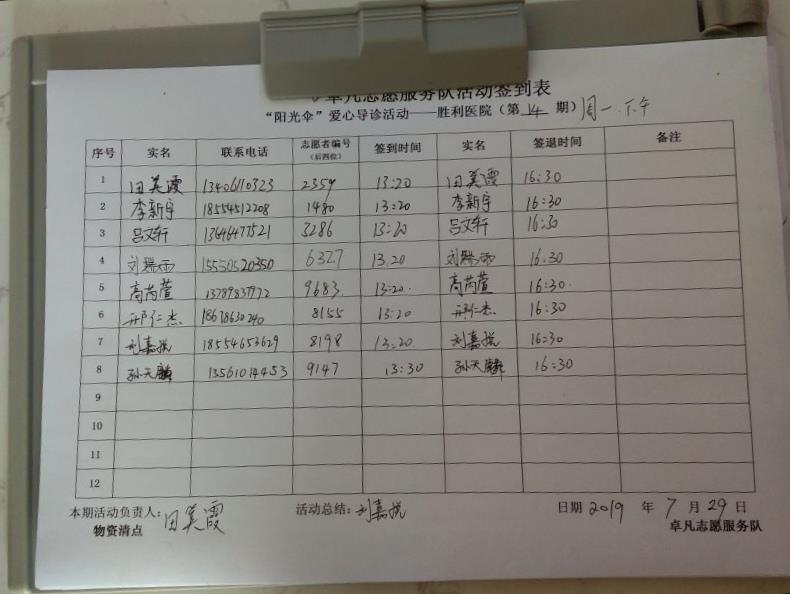 卓凡志愿服务队活动签到表
“阳光伞”爱心导诊活动——胜利医院（第 14 期）周一.下午
序号 实名 联系电话 志愿者编号（后四位） 签到时间 实名 签退时间 备注
1 田美霞 13406110323 2359 13:20 田美霞 16:30
2 李新宇 18554512208 1480 13:20 李新宇 16:30
3 吕文轩 13646477521 3286 13:20 吕文轩 16:30
4 刘瑞雨 15550520350 6327 13.20 刘瑞雨 16.30
5 高芮萱 13789837972 9683. 13:20. 高芮萱 16:30.
6 邢仁杰 18678630240 8155 13:20 邢仁杰 16:30
7 刘嘉悦 18554653629 8198 13:20 刘嘉悦 16:30
8 孙天麟 13561014453 9147 13:30 孙天麟 16:30
9
10
11
12
本期活动负责人：田美霞 活动总结：刘嘉悦 日期 2019 年 7 月 29 日
物资清点 卓凡志愿服务队